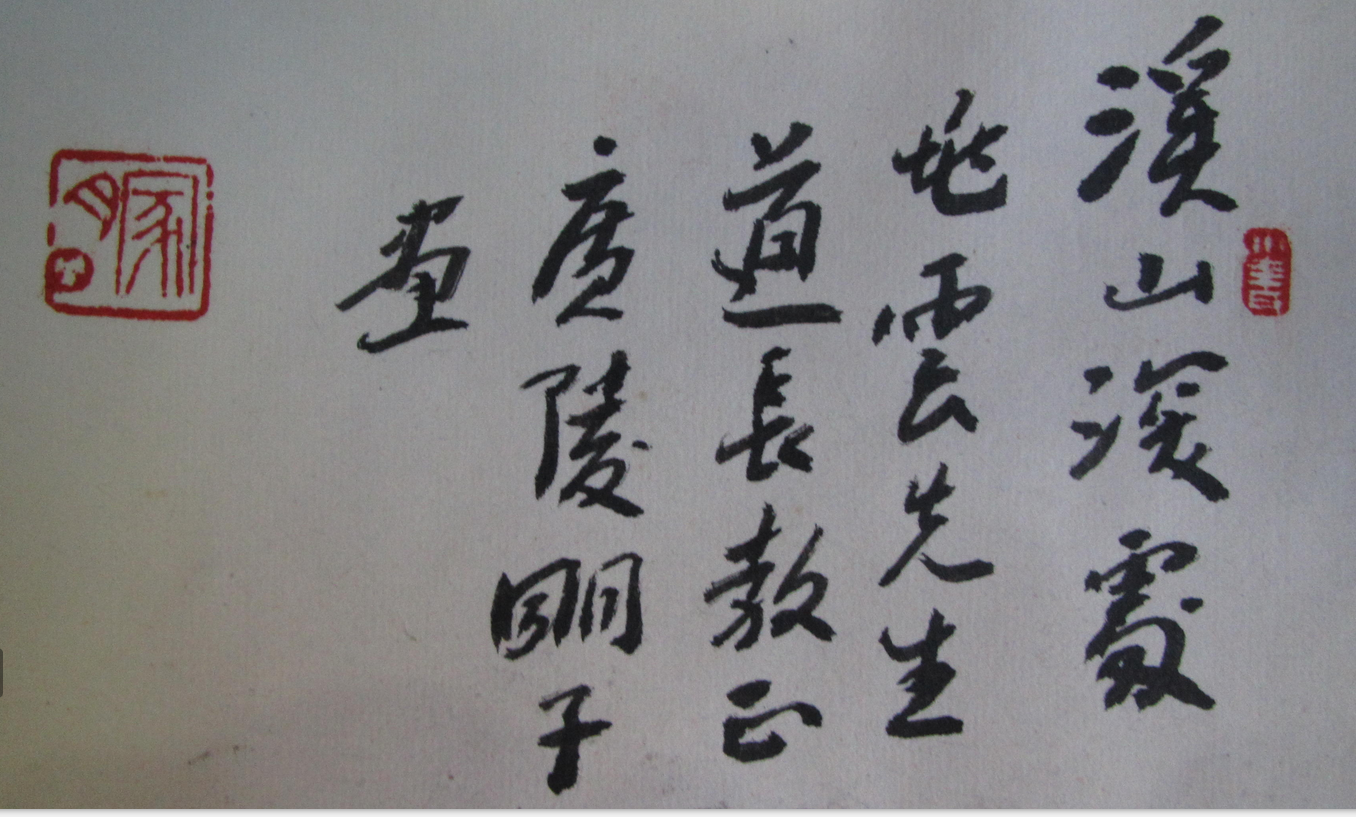 溪山深處
雲先生
道長教正
廣陵朙子
畫